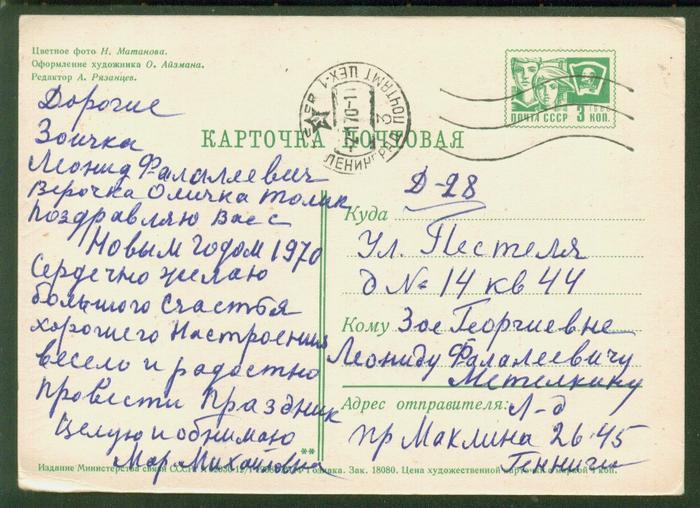 Цветное фото Н. Матанова.
Оформление художника О. Айзмана.
Редактор А. Рязанцев.
ПОЧТА СССР 3 КОП.
ЛЕНИНГРАД
ПОЧТАМТ ЦЕХ-1
КАРТОЧКА ПОЧТОВАЯ
Дорогие
Зоичка
Леонид Фалалеевич
Верочка Оличка Толик
Поздравляю Вас с
Новым Годом 1970
Сердечно желаю
большого счастья
хорошего Настроения
весело и радостно
Провести Праздник
Целую и обнимаю
Мар. Михайловна
Куда Д-28
Ул. Пестеля
д № 14 кв 44
Кому Зое Георгиевне
Леониду Фалалеевичу
Метелкину
Адрес отправителя: Л-д
пр Маклина 26-45
**
Издание Министерства связи СССР
Гознака. Зак. 18080. Цена художественной карточки с маркой 4 коп.